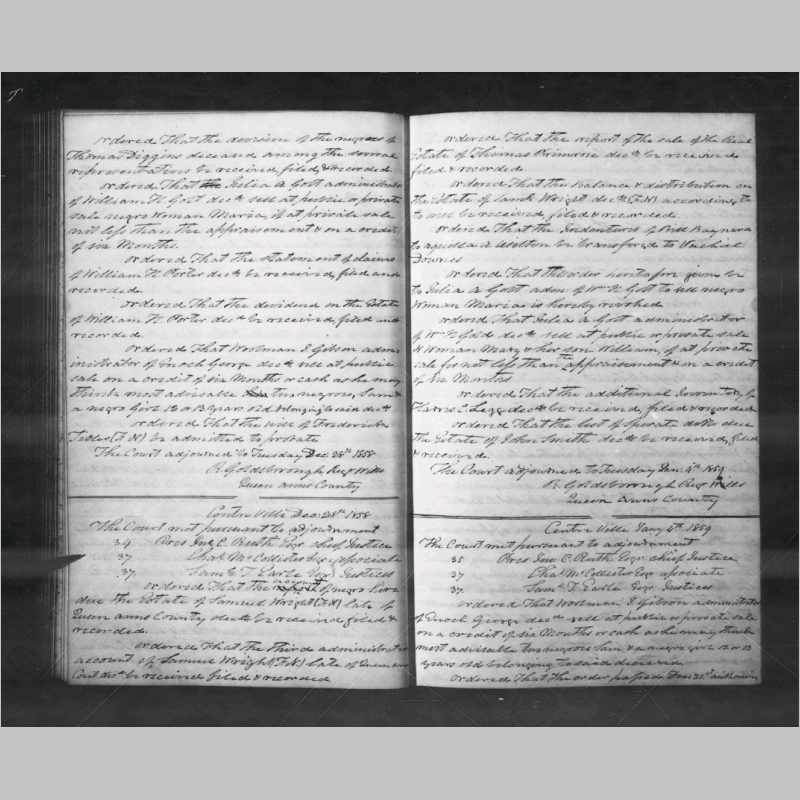 ordered That the devision of the negroes of
Thomas Diggins deceased among the several
representatives be received, filed, & recorded
ordered That Julia A Gott administrator
of William H. Gott decd. sell at public or private
sale negro Woman Maria, if at private sale
not less than the appraisement & on a credit
of six Months.
ordered That the statement of claims
of William H. Porter decd. be received, filed and
recorded.
ordered That the dividend on the Estate
of William H. Porter decd. be received, filed and
recorded.
ordered That Woolman J Gibson admi-
nistrator of Enoch George decd. sell at public
sale on a credit of six Months or cash as he may
think most advisable two negroes, Sam &
a negro Girl 12 or 13 years old belonging to said decd.
ordered That the will of Frederick
(F N) be admitted to probate
The Court adjourned to Tuesday Dec 28th 1858
R. Goldsborough Regr Wills
Queen Anns County
Centre Ville Dec. 28th 1858
The Court met pursuant to adjournment
34 Pres Jno. C. Ruth Esqr. chief Justice
37 Chas. McCollister Esqr. associate
37 Saml. T. Earle Esqr. Justices
ordered That the account of negro hire
due the Estate of Samuel Wright (F.N) late of
Queen Anns County decd. be received, filed &
recorded.
ordered That the third administration
account of Samuel Wright (F.N.) late of Queen Anns
Cont decd. be received filed & recorded
ordered That the report of the sale of the Real
Estate of Thomas Primrose decd. be received
filed & recorded.
ordered That the balance & distribution on
the Estate of Wright decd. (F.N) according to
to will be received, filed & recorded.
ordered That the Indentures of Bill Raynera
to aquilla Welton be transferred to
Downes
ordered That the order heretofore given be
to Julia A Gott adm of Wm H. Gott to sell negro
Woman Maria is hereby revoked
ordered That Julia A Gott administrator
of Wm H Gott decd. sell at public or private sale
Woman Mary & her son William, if at private
sale for not less than the appraisement & on a credit
of six Months
ordered That the additional Inventory of
Legg decd. be received, filed & recorded
ordered That the list of sperate debts due
the Estate of John Smith decd. be received, filed
& recorded.
The Court adjourned to Tuesday Jan. 4th 1859
R. Goldsborough Regr Wills
Queen Anns County
Centre Ville Jany 4th 1859
The Court met pursuant to adjournment
35 Pres Jno C. Ruth Esqr. chief Justice
37 Chas. McCollister Esqr associate
37 Saml. T. Earle Esqr. Justices
ordered That Woolman J Gibson administrator
of Enoch George decd. sell at public or private sale
on a credit of six Months or cash as he may think
most advisable two negroes Sam & a negro girl 12 or 13
years old belonging to said deceased
ordered That the order passed Dec 21st